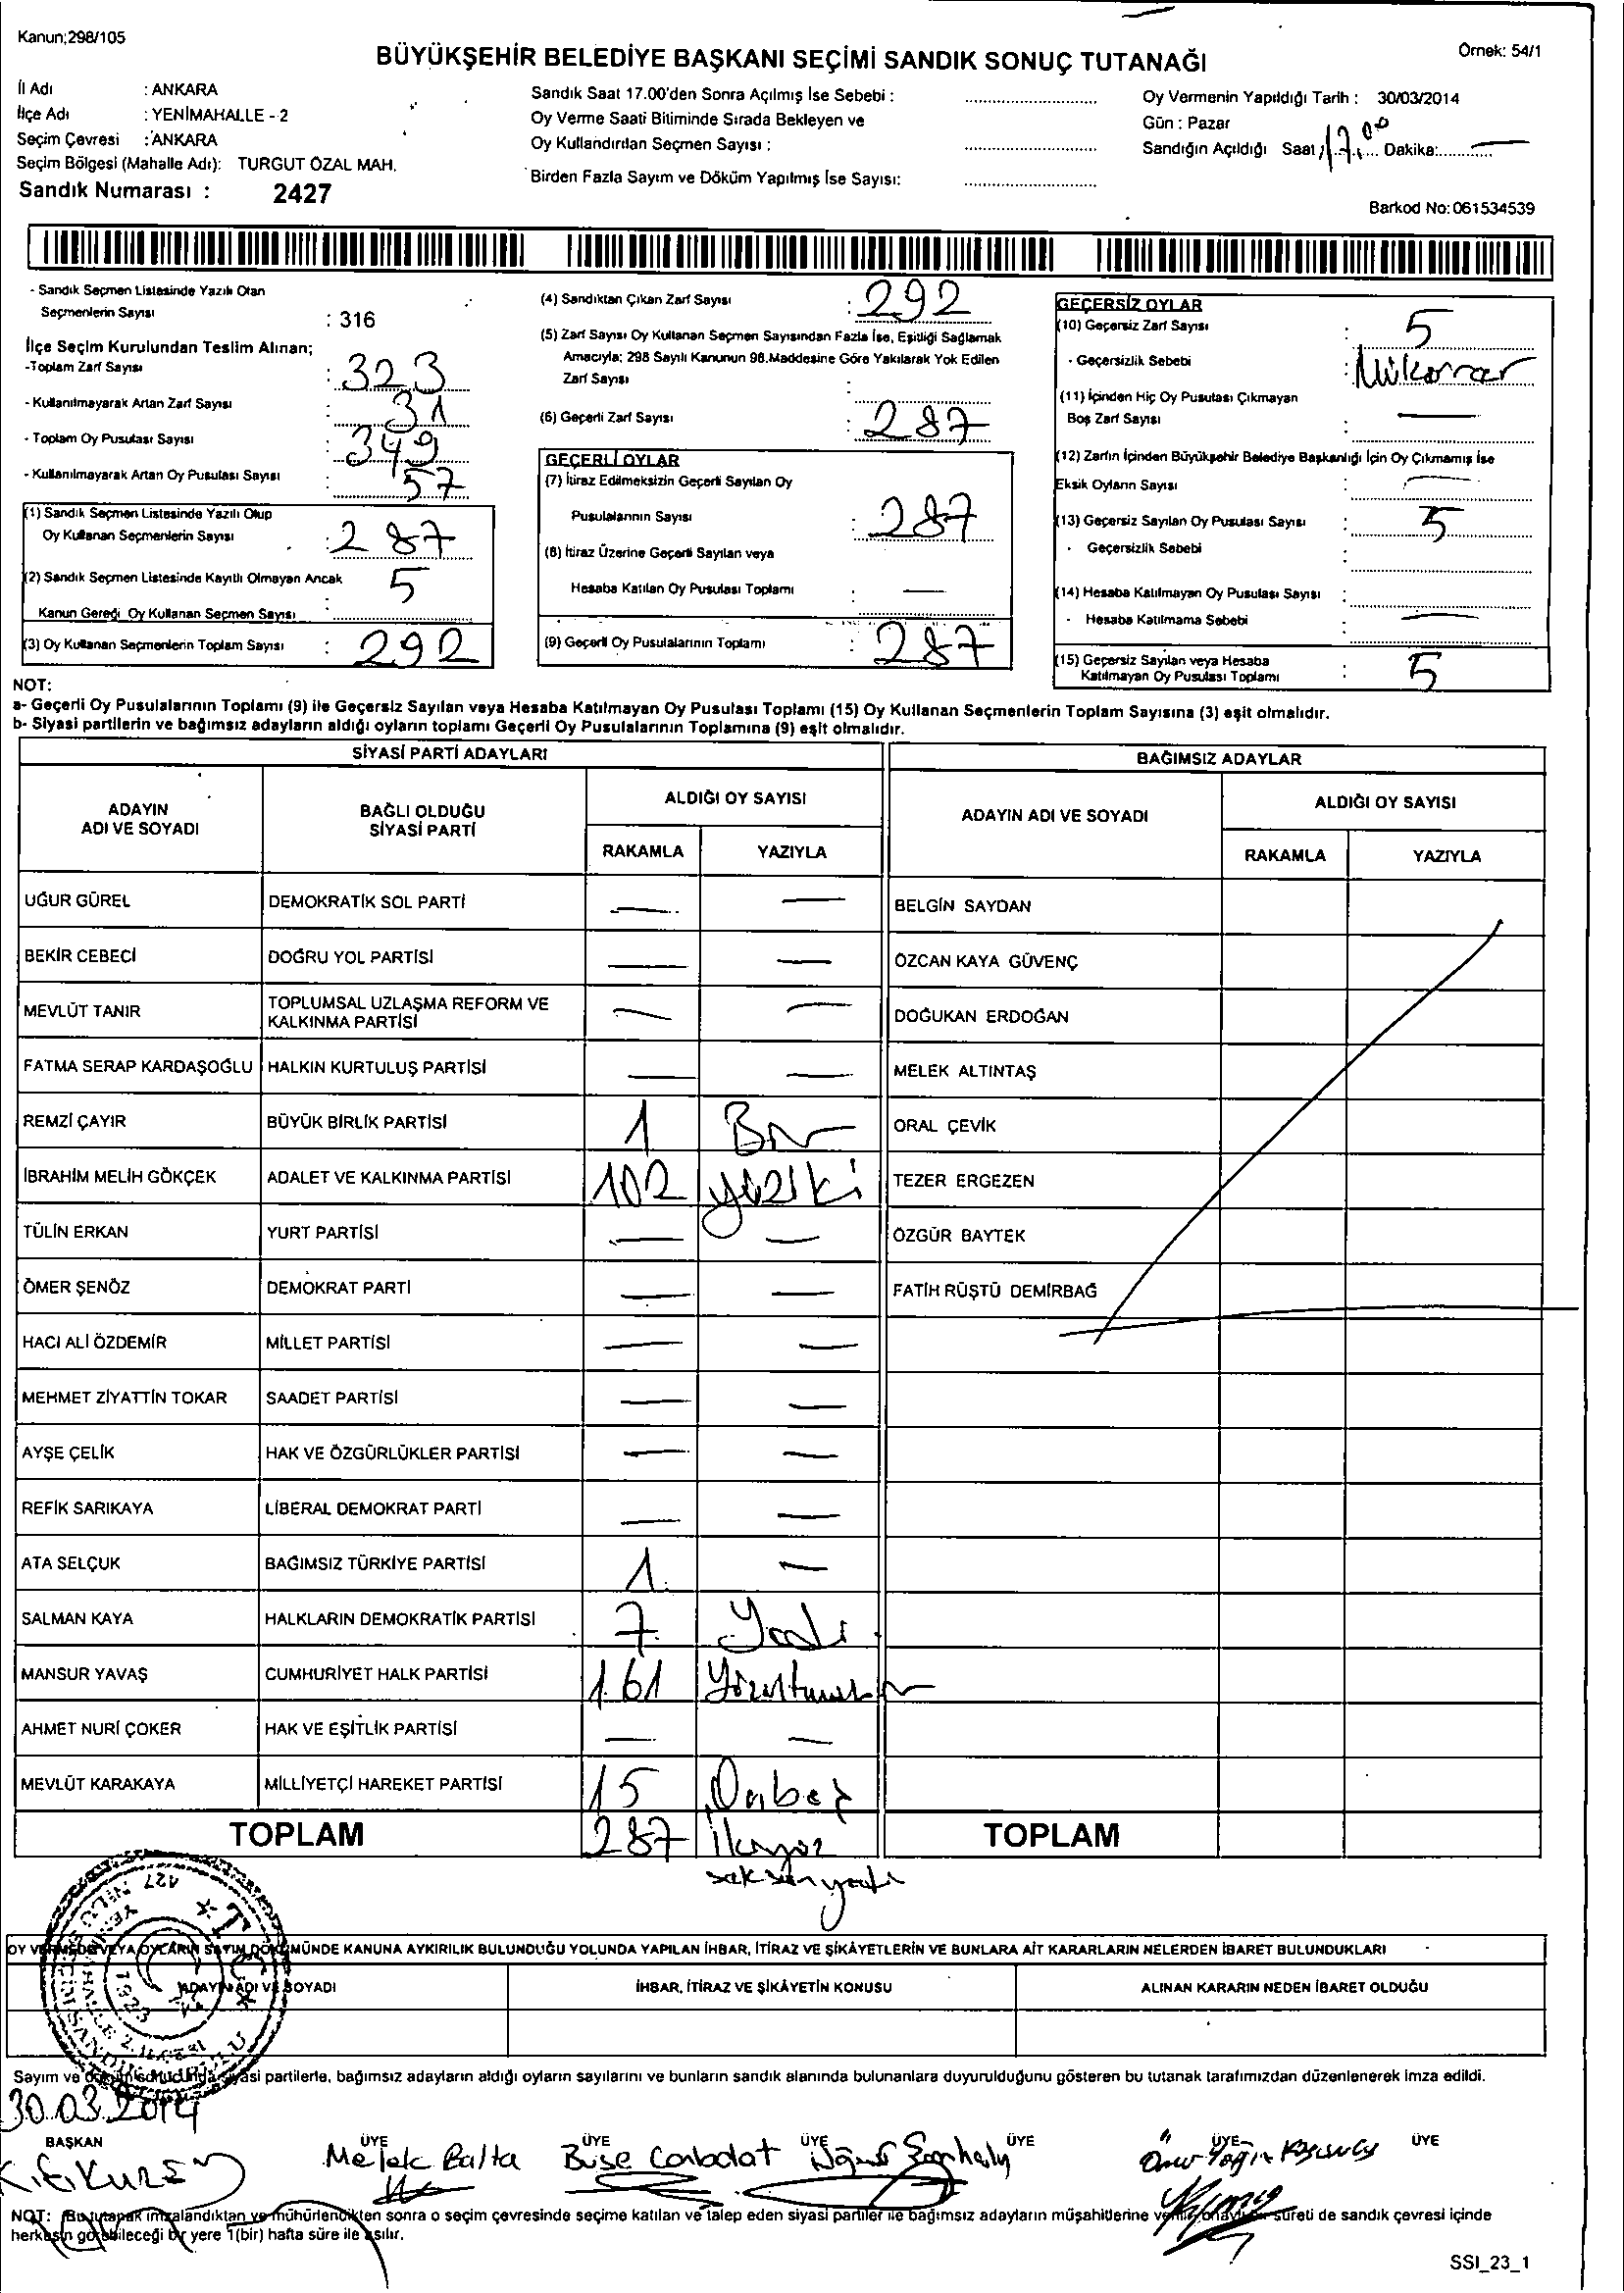 Kanun;298/105
BÜYÜKŞEHİR BELEDİYE BAŞKANI SEÇİMİ SANDIK SONUÇ TUTANAĞI
Örnek: 54/1
İl Adı : ANKARA
İlçe Adı : YENİMAHALLE - 2
Seçim Çevresi : ANKARA
Seçim Bölgesi (Mahalle Adı): TURGUT ÖZAL MAH.
Sandık Numarası : 2427
Sandık Saat 17.00'den Sonra Açılmış İse Sebebi :
Oy Verme Saati Bitiminde Sırada Bekleyen ve
Oy Kullandırılan Seçmen Sayısı :
Birden Fazla Sayım ve Döküm Yapılmış İse Sayısı:
Oy Vermenin Yapıldığı Tarih : 30/03/2014
Gün : Pazar
Sandığın Açıldığı Saat 17.00 Dakika: —
Barkod No: 061534539
- Sandık Seçmen Listesinde Yazılı Olan
Seçmenlerin Sayısı : 316
İlçe Seçim Kurulundan Teslim Alınan;
-Toplam Zarf Sayısı : 323
- Kullanılmayarak Artan Zarf Sayısı : 31
- Toplam Oy Pusulası Sayısı : 349
- Kullanılmayarak Artan Oy Pusulası Sayısı : 57
(1) Sandık Seçmen Listesinde Yazılı Olup
Oy Kullanan Seçmenlerin Sayısı : 287
(2) Sandık Seçmen Listesinde Kayıtlı Olmayan Ancak
Kanun Gereği Oy Kullanan Seçmen Sayısı : 5
(3) Oy Kullanan Seçmenlerin Toplam Sayısı : 292
(4) Sandıktan Çıkan Zarf Sayısı : 292
(5) Zarf Sayısı Oy Kullanan Seçmen Sayısından Fazla İse, Eşitliği Sağlamak
Amacıyla; 298 Sayılı Kanunun 98.Maddesine Göre Yakılarak Yok Edilen
Zarf Sayısı :
(6) Geçerli Zarf Sayısı : 287
GEÇERLİ OYLAR
(7) İtiraz Edilmeksizin Geçerli Sayılan Oy
Pusulalarının Sayısı : 287
(8) İtiraz Üzerine Geçerli Sayılan veya
Hesaba Katılan Oy Pusulası Toplamı : —
(9) Geçerli Oy Pusulalarının Toplamı : 287
GEÇERSİZ OYLAR
(10) Geçersiz Zarf Sayısı : 5
- Geçersizlik Sebebi : Mükerrer
(11) İçinden Hiç Oy Pusulası Çıkmayan
Boş Zarf Sayısı : —
(12) Zarfın İçinden Büyükşehir Belediye Başkanlığı İçin Oy Çıkmamış İse
Eksik Oyların Sayısı : —
(13) Geçersiz Sayılan Oy Pusulası Sayısı : 5
- Geçersizlik Sebebi :
(14) Hesaba Katılmayan Oy Pusulası Sayısı :
- Hesaba Katılmama Sebebi : —
(15) Geçersiz Sayılan veya Hesaba
Katılmayan Oy Pusulası Toplamı : 5
NOT:
a- Geçerli Oy Pusulalarının Toplamı (9) ile Geçersiz Sayılan veya Hesaba Katılmayan Oy Pusulası Toplamı (15) Oy Kullanan Seçmenlerin Toplam Sayısına (3) eşit olmalıdır.
b- Siyasi partilerin ve bağımsız adayların aldığı oyların toplamı Geçerli Oy Pusulalarının Toplamına (9) eşit olmalıdır.
SİYASİ PARTİ ADAYLARI
ADAYIN ADI VE SOYADI BAĞLI OLDUĞU SİYASİ PARTİ ALDIĞI OY SAYISI
RAKAMLA YAZIYLA
UĞUR GÜREL DEMOKRATİK SOL PARTİ — —
BEKİR CEBECİ DOĞRU YOL PARTİSİ — —
MEVLÜT TANIR TOPLUMSAL UZLAŞMA REFORM VE KALKINMA PARTİSİ — —
FATMA SERAP KARDAŞOĞLU HALKIN KURTULUŞ PARTİSİ — —
REMZİ ÇAYIR BÜYÜK BİRLİK PARTİSİ 1 Bir
İBRAHİM MELİH GÖKÇEK ADALET VE KALKINMA PARTİSİ 102 yüziki
TÜLİN ERKAN YURT PARTİSİ — —
ÖMER ŞENÖZ DEMOKRAT PARTİ — —
HACI ALİ ÖZDEMİR MİLLET PARTİSİ — —
MEHMET ZİYATTİN TOKAR SAADET PARTİSİ — —
AYŞE ÇELİK HAK VE ÖZGÜRLÜKLER PARTİSİ — —
REFİK SARIKAYA LİBERAL DEMOKRAT PARTİ — —
ATA SELÇUK BAĞIMSIZ TÜRKİYE PARTİSİ 1 —
SALMAN KAYA HALKLARIN DEMOKRATİK PARTİSİ 7 Yedi
MANSUR YAVAŞ CUMHURİYET HALK PARTİSİ 161 Yüzaltmışbir
AHMET NURİ ÇOKER HAK VE EŞİTLİK PARTİSİ — —
MEVLÜT KARAKAYA MİLLİYETÇİ HAREKET PARTİSİ 15 Onbeş
TOPLAM 287 ikiyüz
seksenyedi
BAĞIMSIZ ADAYLAR
ADAYIN ADI VE SOYADI ALDIĞI OY SAYISI
RAKAMLA YAZIYLA
BELGİN SAYDAN
ÖZCAN KAYA GÜVENÇ
DOĞUKAN ERDOĞAN
MELEK ALTINTAŞ
ORAL ÇEVİK
TEZER ERGEZEN
ÖZGÜR BAYTEK
FATİH RÜŞTÜ DEMİRBAĞ
TOPLAM
OY VERMEDE VEYA OYLARIN SAYIM DÖKÜMÜNDE KANUNA AYKIRILIK BULUNDUĞU YOLUNDA YAPILAN İHBAR, İTİRAZ VE ŞİKÂYETLERİN VE BUNLARA AİT KARARLARIN NELERDEN İBARET BULUNDUKLARI
ADAYIN ADI VE SOYADI İHBAR, İTİRAZ VE ŞİKÂYETİN KONUSU ALINAN KARARIN NEDEN İBARET OLDUĞU
Sayım ve döküm sonucunda siyasi partilerle, bağımsız adayların aldığı oyların sayılarını ve bunların sandık alanında bulunanlara duyurulduğunu gösteren bu tutanak tarafımızdan düzenlenerek imza edildi.
30.03.2014
BAŞKAN ÜYE ÜYE ÜYE ÜYE ÜYE ÜYE
Melek Balta Buse
NOT: Bu tutanak imzalandıktan ve mühürlendikten sonra o seçim çevresinde seçime katılan ve talep eden siyasi partiler ile bağımsız adayların müşahitlerine verilir, onaylı bir sureti de sandık çevresi içinde
herkesin görebileceği bir yere 1(bir) hafta süre ile asılır.
SSI_23_1